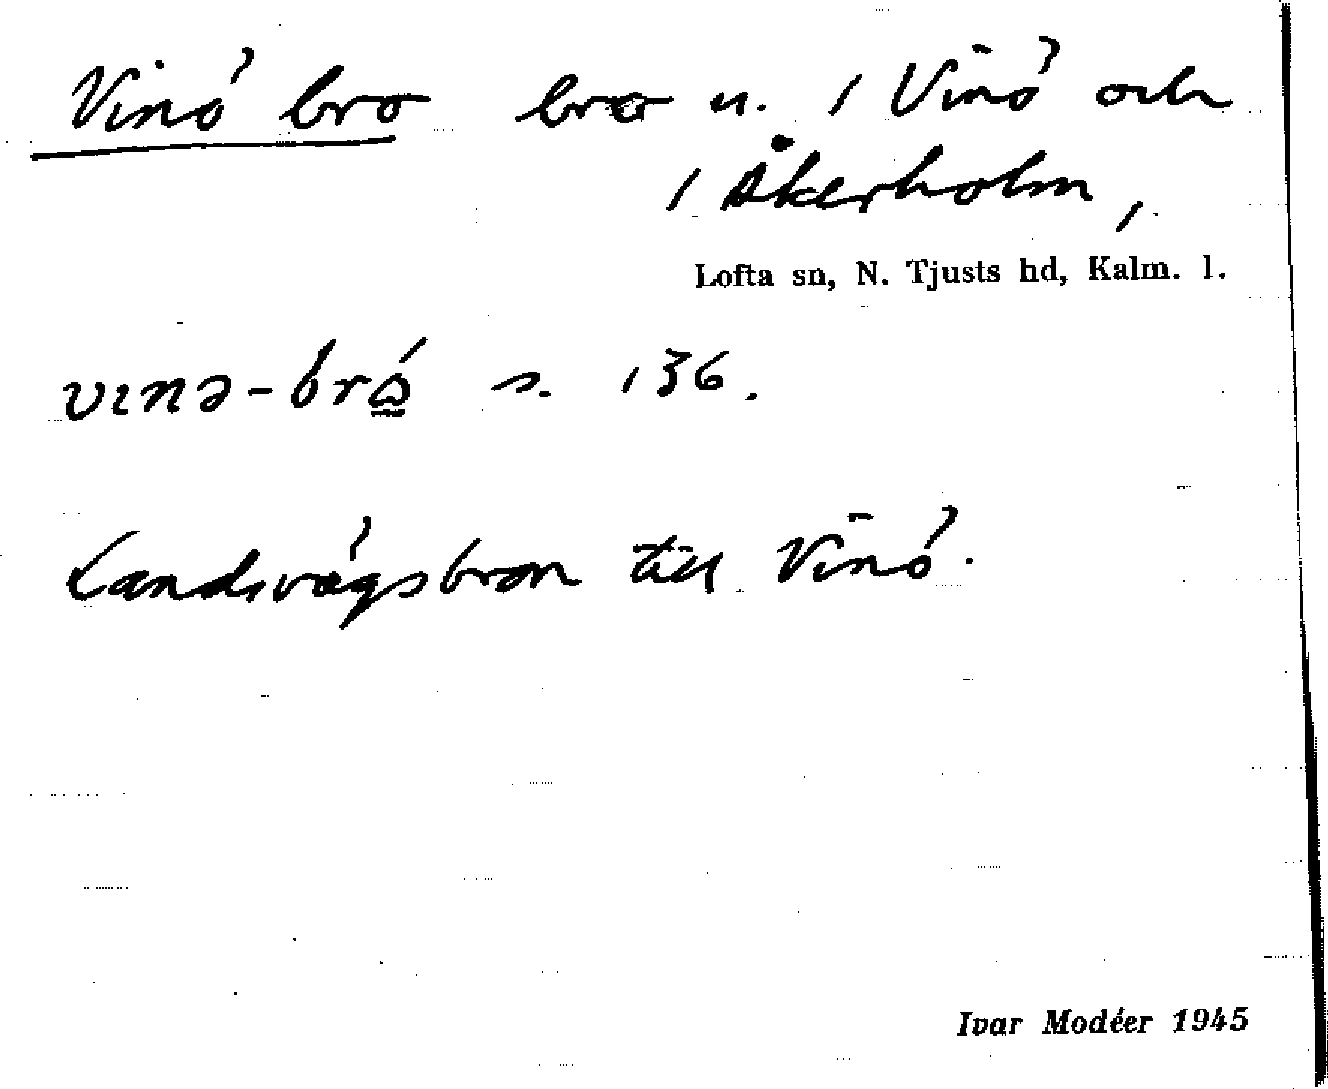 Vinö bro bro n. 1 Vinö och
1 Åkerholm,
Lofta sn, N. Tjusts hd, Kalm. l.
vɪnə-bró̲̲ s. 136.
Landsvägsbron till Vinö.
Ivar Modéer 1945